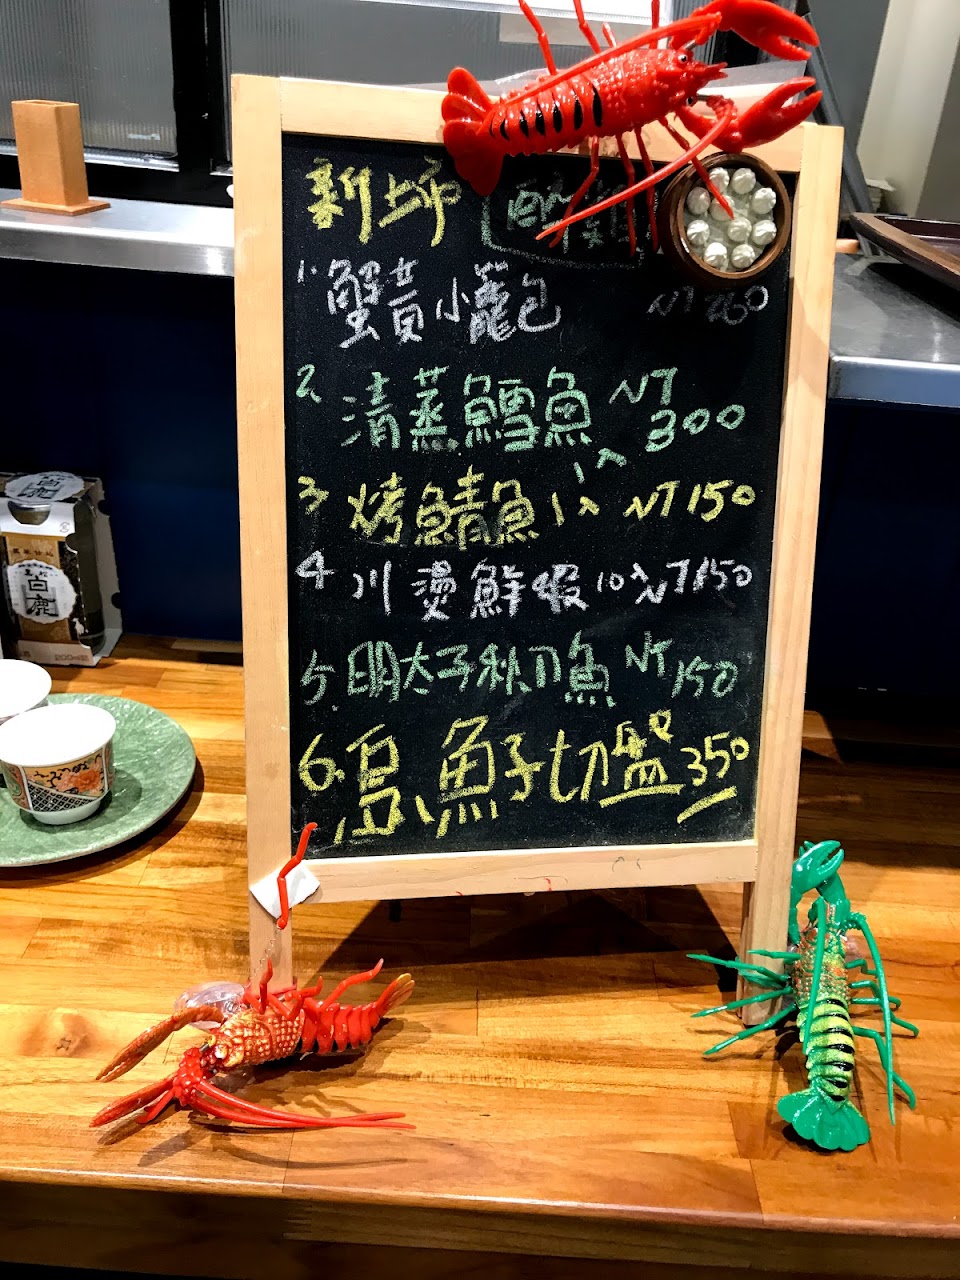 新上市
1. 蟹黃小籠包 NT 250
2. 清蒸鱈魚 NT 300
1入
3. 烤鯖魚 1入 NT 150
4 川燙鮮蝦 10入 NT 150
5. 明太子秋刀魚 NT 150
6. 烏魚子切盤 350
白鹿